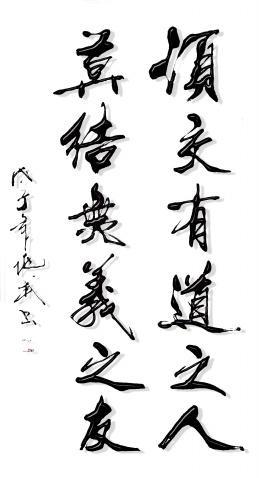 須交有道之人
莫結無義之友
戊子年